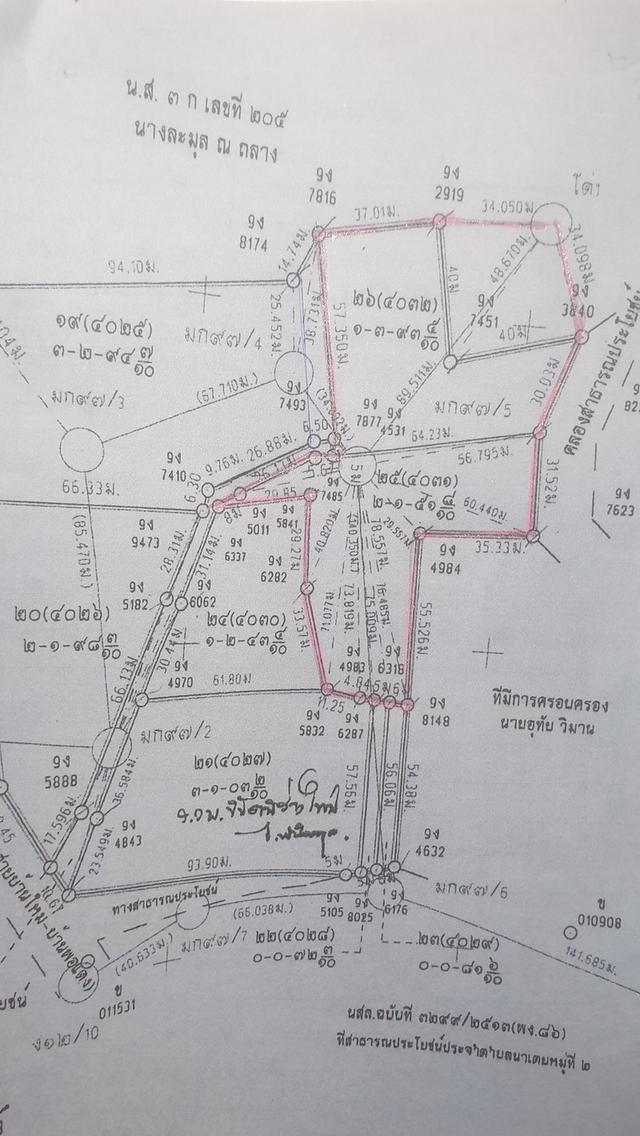 น.ส. ๓ ก เลขที่ ๒๐๕
นางละมุล ณ ถลาง
9ง
7816
9ง
2919
9ง
8174
37.01ม.
34.050ม
94.10ม.
14.74ม
25.452ม
38.731ม
57.350ม.
40ม
48.670ม
34.098ม
9ง
3840
๑๙(๔๐๒๕)
๓-๒-๙๔ ๗/๑๐
มก๙๗/4
๒๖(๔๐๓๒)
9ง
7451
40ม
มก๙๗/3
(67.710ม)
9ง
7493
89.511ม
มก๙๗/5
30.03ม
คลองสาธารณประโยชน์
9ง
7877
9ง
4531
64.23ม.
56.795ม
6.50
26.88ม
9.76ม
9ง
7410
6.30
66.33ม.
(85.470ม)
5ม
๒๕(๔๐๓๑)
60.440ม
31.52ม
9ง
7623
29.85
9ง
7485
8ม
9ง
5011
9ง
5841
9ง
9473
9ง
6337
29.27ม
40.820ม
9ง
4984
35.33ม
9ง
6282
28.31ม
31.14ม
9ง
5182
9ง
6062
๒๐(๔๐๒๖)
๒-๑-๙๘ ๓/๑๐
๒๔(๔๐๓๐)
33.57ม
71.077ม
73.819ม
75.009ม
76.485ม
78.557ม
55.526ม
30.44ม
66.13ม
9ง
4970
61.80ม.
9ง
4983
9ง
6318
ที่มีการครอบครอง
นายอุทัย วิมาน
11.25
9ง
5832
9ง
6287
9ง
8148
มก๙๗/2
9ง
5888
๒๑(๔๐๒๗)
๓-๑-๐๓ ๒/๑๐
36.584ม
57.56ม
56.06ม
54.38ม
17.596ม
23.549ม
9ง
4843
93.90ม.
5ม
9ง
4632
10.67
ทางสาธารณประโยชน์
(66.038ม)
9ง
5105
9ง
8025
9ง
6176
มก๙๗/6
(40.633ม)
มก๙๗/7
๒๒(๔๐๒๘)
๐-๐-๗๒ ๓/๑๐
๒๓(๔๐๒๙)
๐-๐-๘๑ ๖/๑๐
ข
010908
141.685ม
ข
011531
ง๑๒/10
นสล.ฉบับที่ ๓๒๙๙/๒๕๑๓(พง.๘๖)
ที่สาธารณประโยชน์ประจำตำบลนาเตยหมู่ที่ ๒